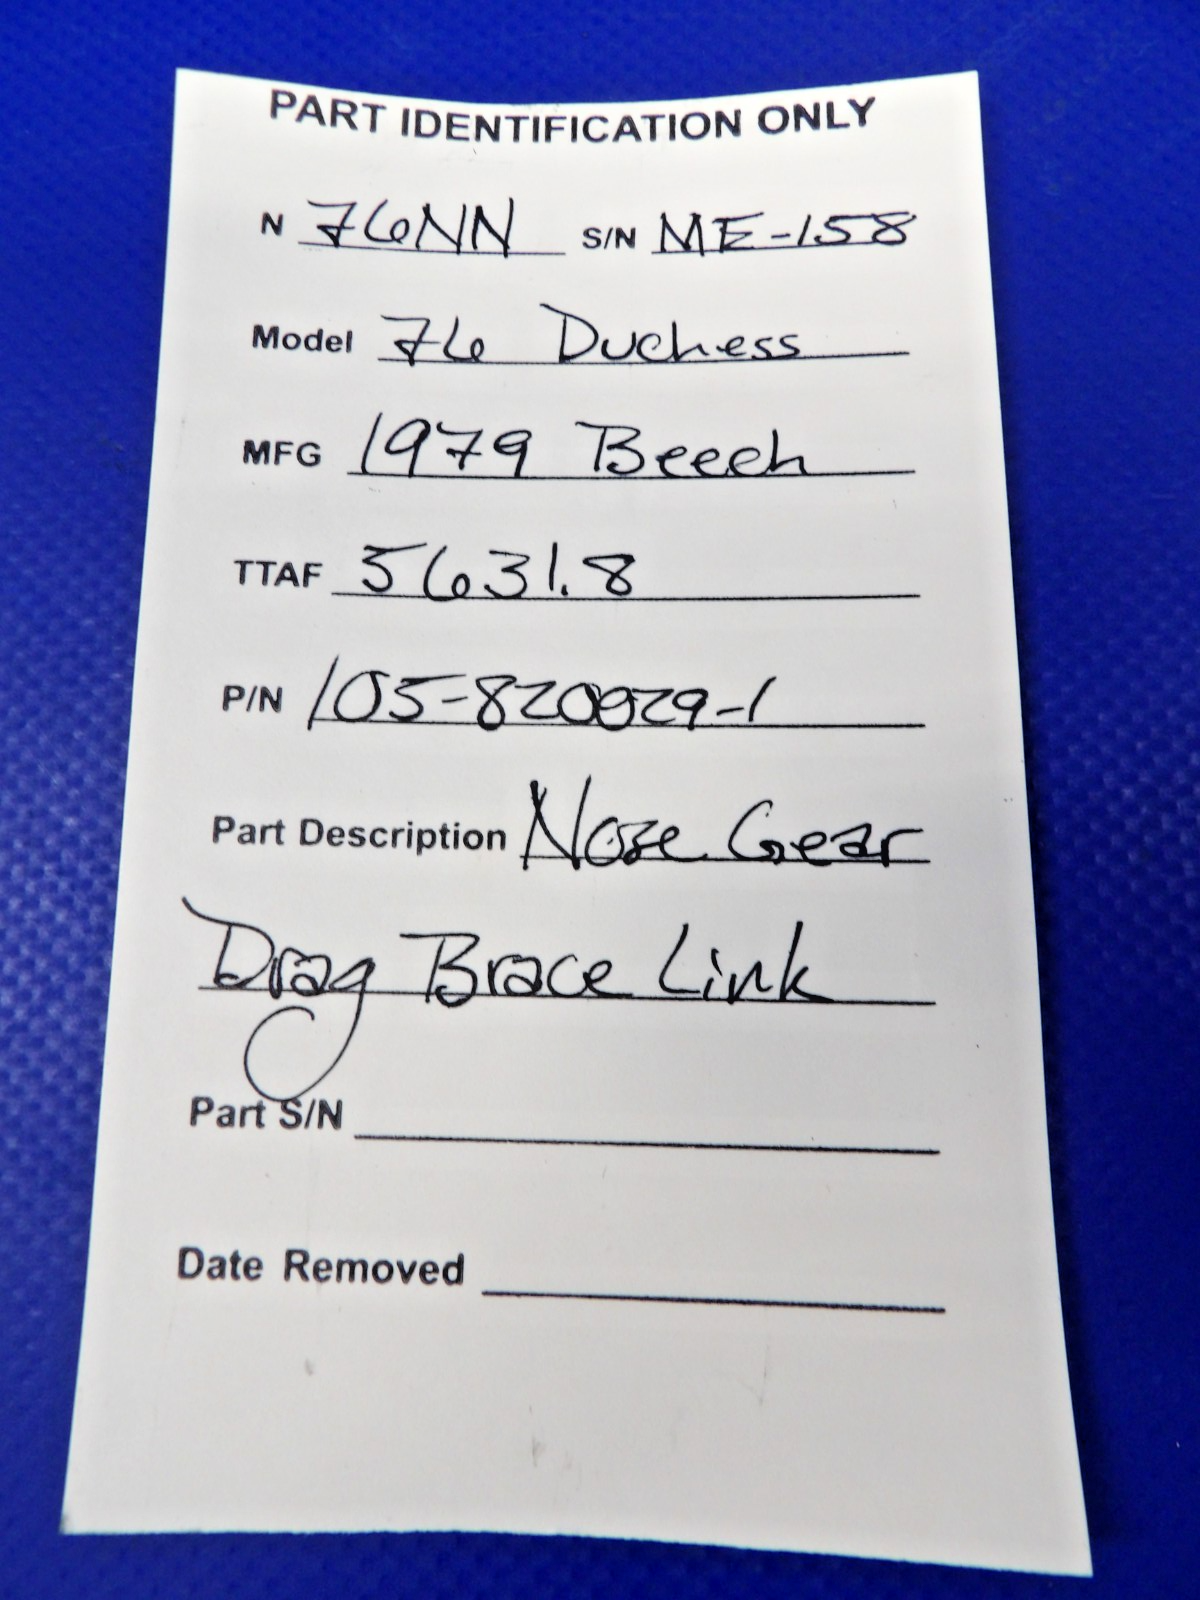 PART IDENTIFICATION ONLY
N 76NN S/N ME-158
Model 76 Duchess
MFG 1979 Beech
TTAF 5631.8
P/N 105-820029-1
Part Description Nose Gear
Drag Brace Link
Part S/N
Date Removed